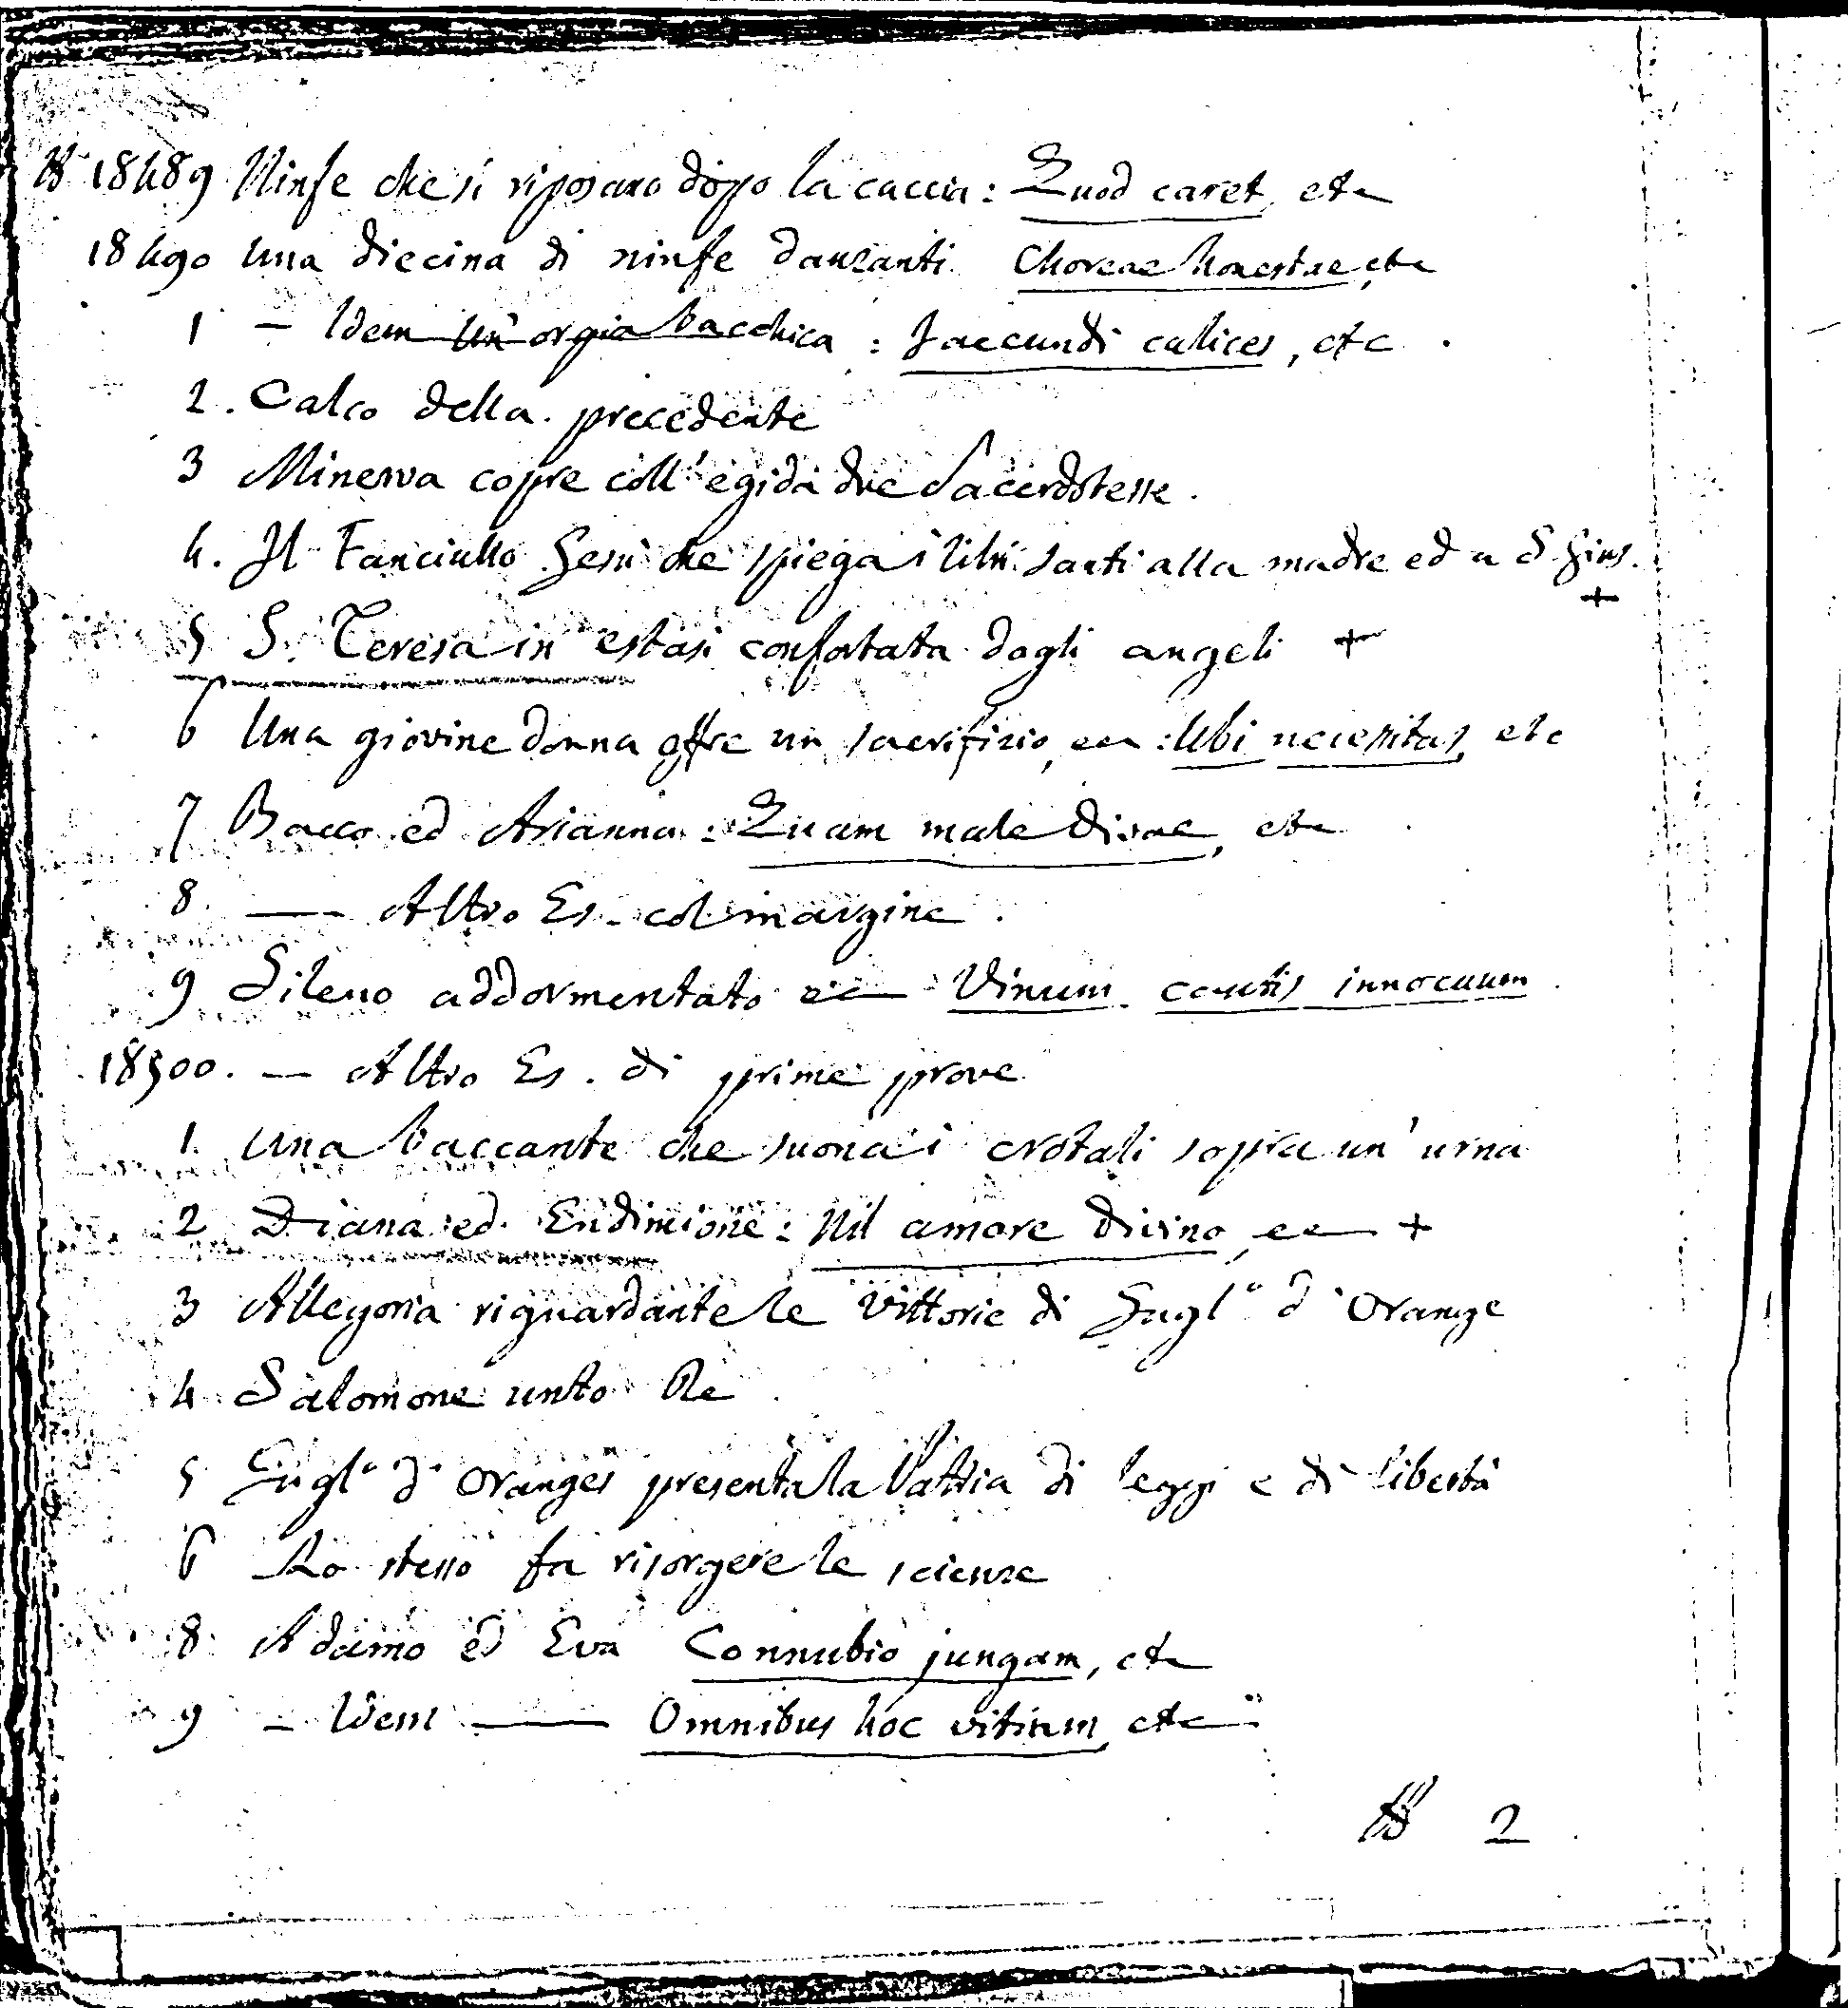 18489 Ninfe che si riposano dopo la caccia: Quod caret, etc
18490 Una diecina di ninfe danzanti Choreae honestae, etc
1 — Idem Un'orgia bacchica: Faecundi calices, etc.
2. Calco della precedente
3 Minerva copre coll'egida due Sacerdotesse.
4. Il Fanciullo Gesù che spiega i libri santi alla madre ed a S. Gius. +
5 S. Teresa in estasi confortata dagli angeli +
6 Una giovine donna offre un sacrifizio, ec: Ubi necessitas, etc
7 Bacco ed Arianna: Quam male divae, etc
8. — Altro Es. col margine.
9 Sileno addormentato ec — Vinum cautis innocuum
18500. — Altro Es. di prime prove
1. Una baccante che suona i crotali sopra un'urna
2 Diana ed Endimione: Nil amore divino, ec — +
3 Allegoria riguardante le Vittorie di Gugl.º d'Orange
4 Salomone unto Re
5 Gugl.º d'Oranges presenta la Patria di leggi e di libertà
6 Lo stesso fa risorgere le scienze
8 Adamo ed Eva Connubio jungam, etc
9 — Idem — Omnibus hoc vitium, etc
2